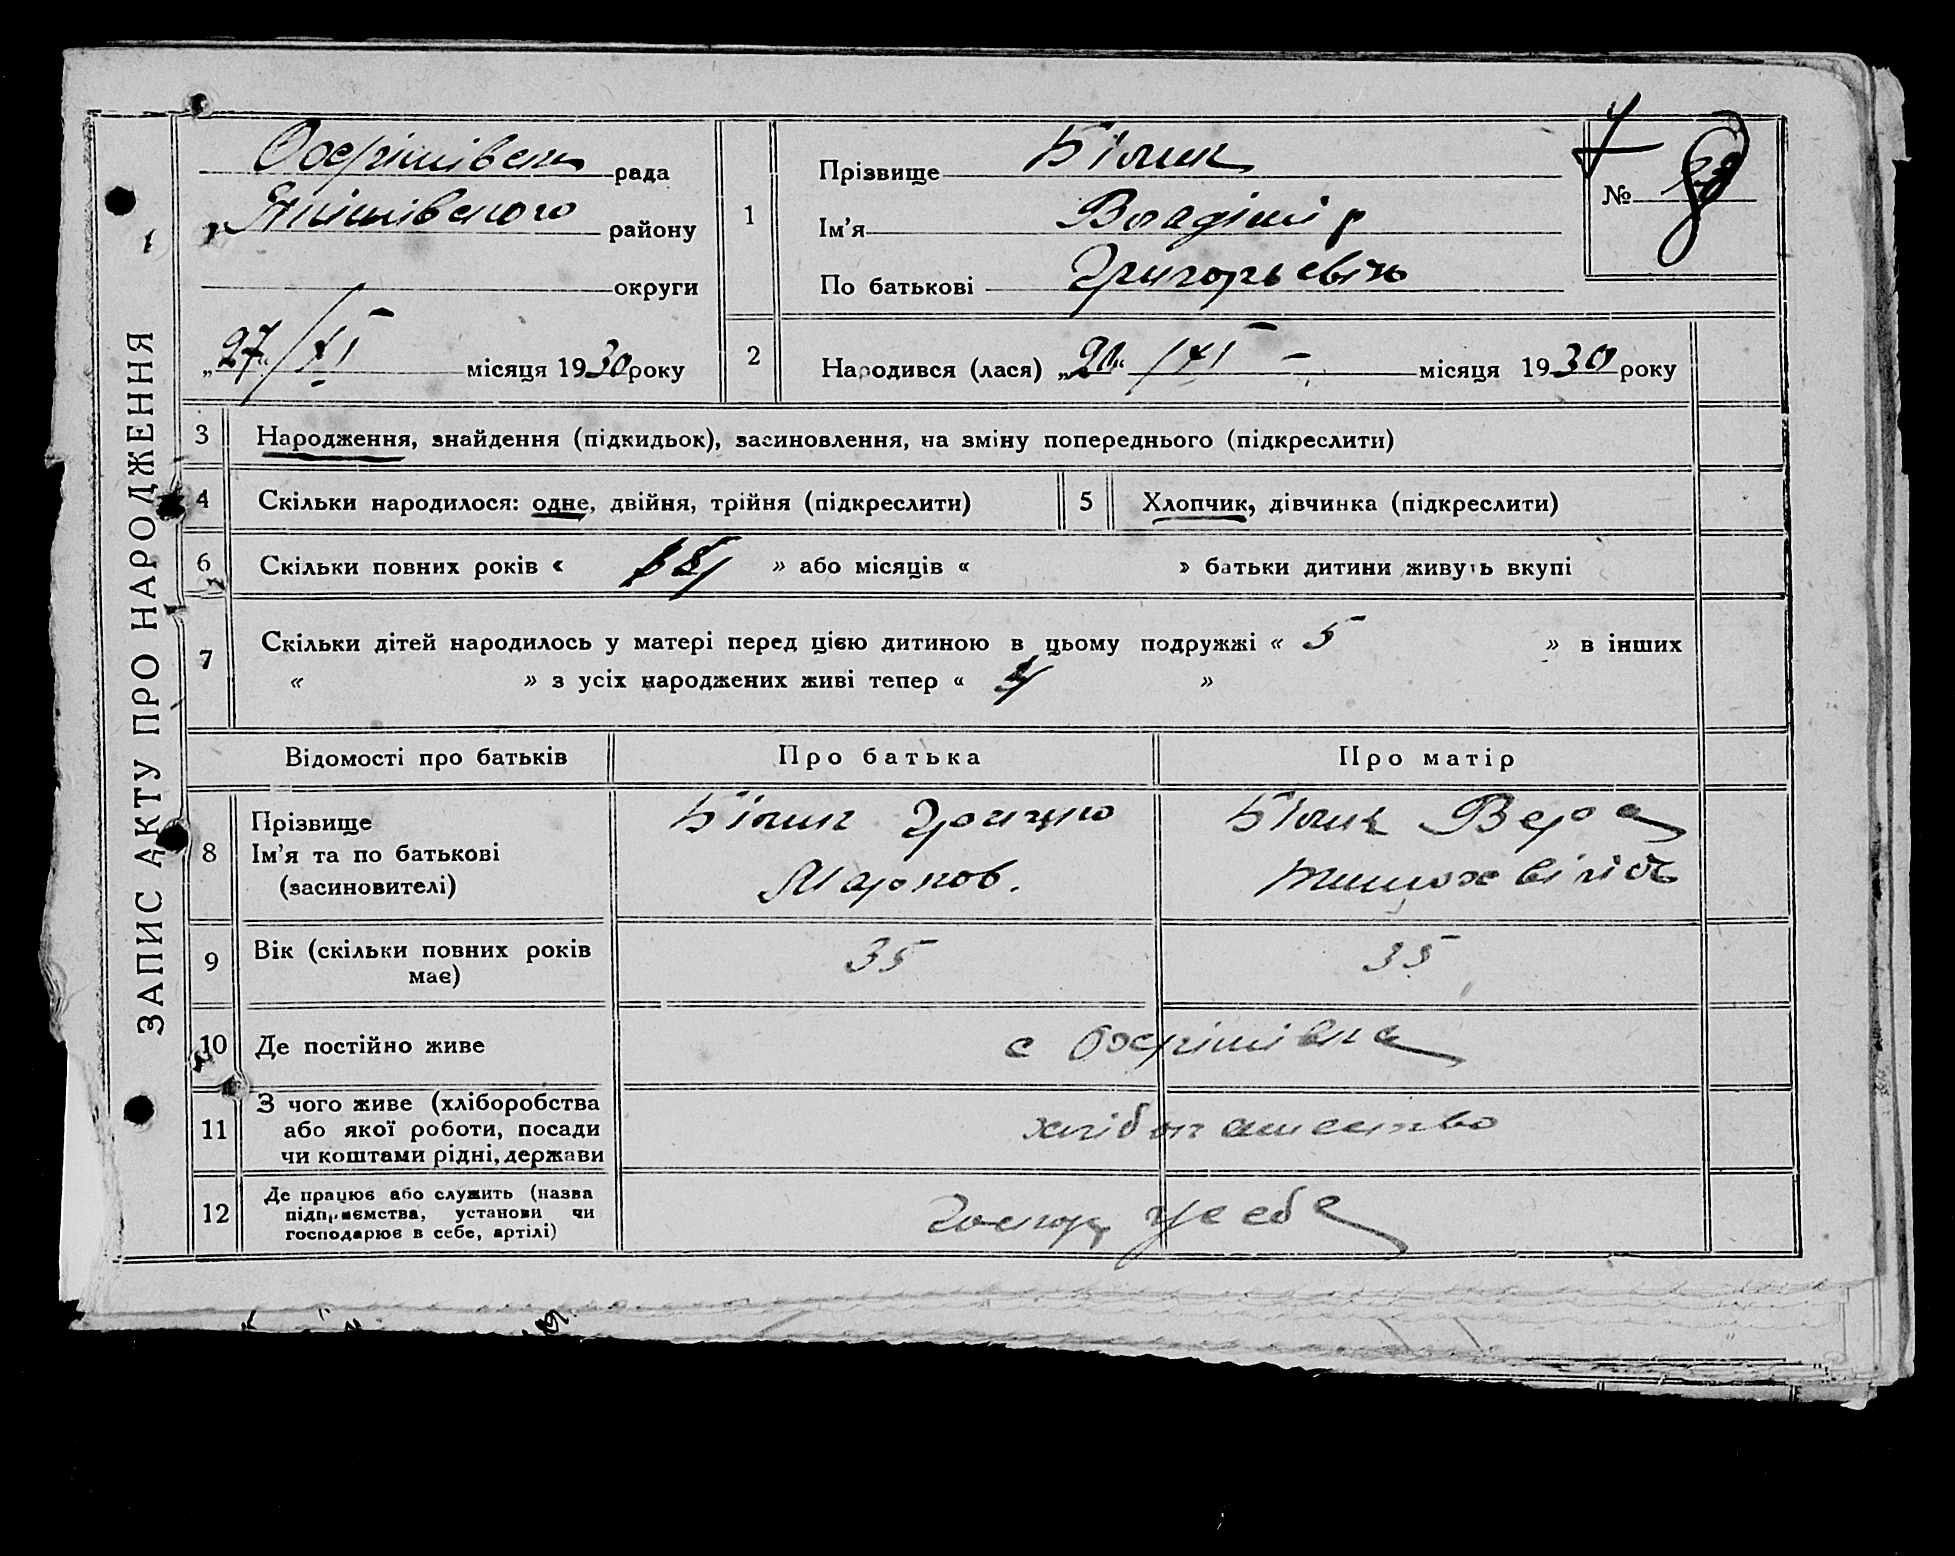 ЗАПИС АКТУ ПРО НАРОДЖЕННЯ
рада
району
округи
„27“ /XI місяця 1930 року
1
Прізвище Білик
Ім'я Владімір
По батькові Григорьевічь
№
2
Народився (лася) „20“ /XI – місяця 1930 року
3 Народження, знайдення (підкидьок), засиновлення, на зміну попереднього (підкреслити)
4 Скільки народилося: одне, двійня, трійня (підкреслити) 5 Хлопчик, дівчинка (підкреслити)
6 Скільки повних років « » або місяців « » батьки дитини живуть вкупі
7 Скільки дітей народилось у матері перед цією дитиною в цьому подружжі « 5 » в інших
« » з усіх народжених живі тепер « »
Відомості про батьків Про батька Про матір
8 Прізвище
Ім'я та по батькові
(засиновителі)
Білик Грицко
Марков.
Білик Вера
9 Вік (скільки повних років
має)
35 35
10 Де постійно живе
с Охрімівка
11 З чого живе (хліборобства
або якої роботи, посади
чи коштами рідні, держави
хлібопашество
12 Де працює або служить (назва
підприємства, установи чи
господарює в себе, артілі)
господ у себе